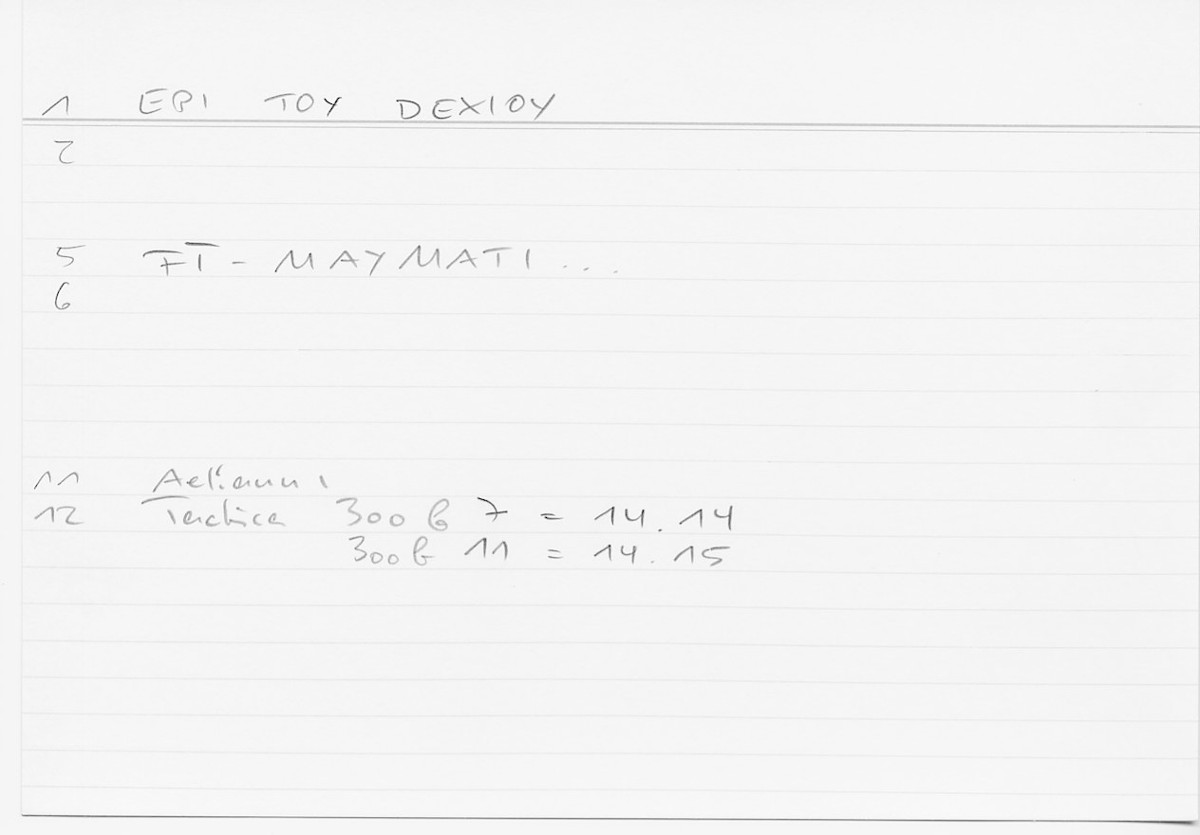 1 EPI TOY DEXIOY
2
5 FT - MAYMATI ...
6
11 Aeliani
12 Tactica 300 b 7 = 14.14
300 b 11 = 14.15